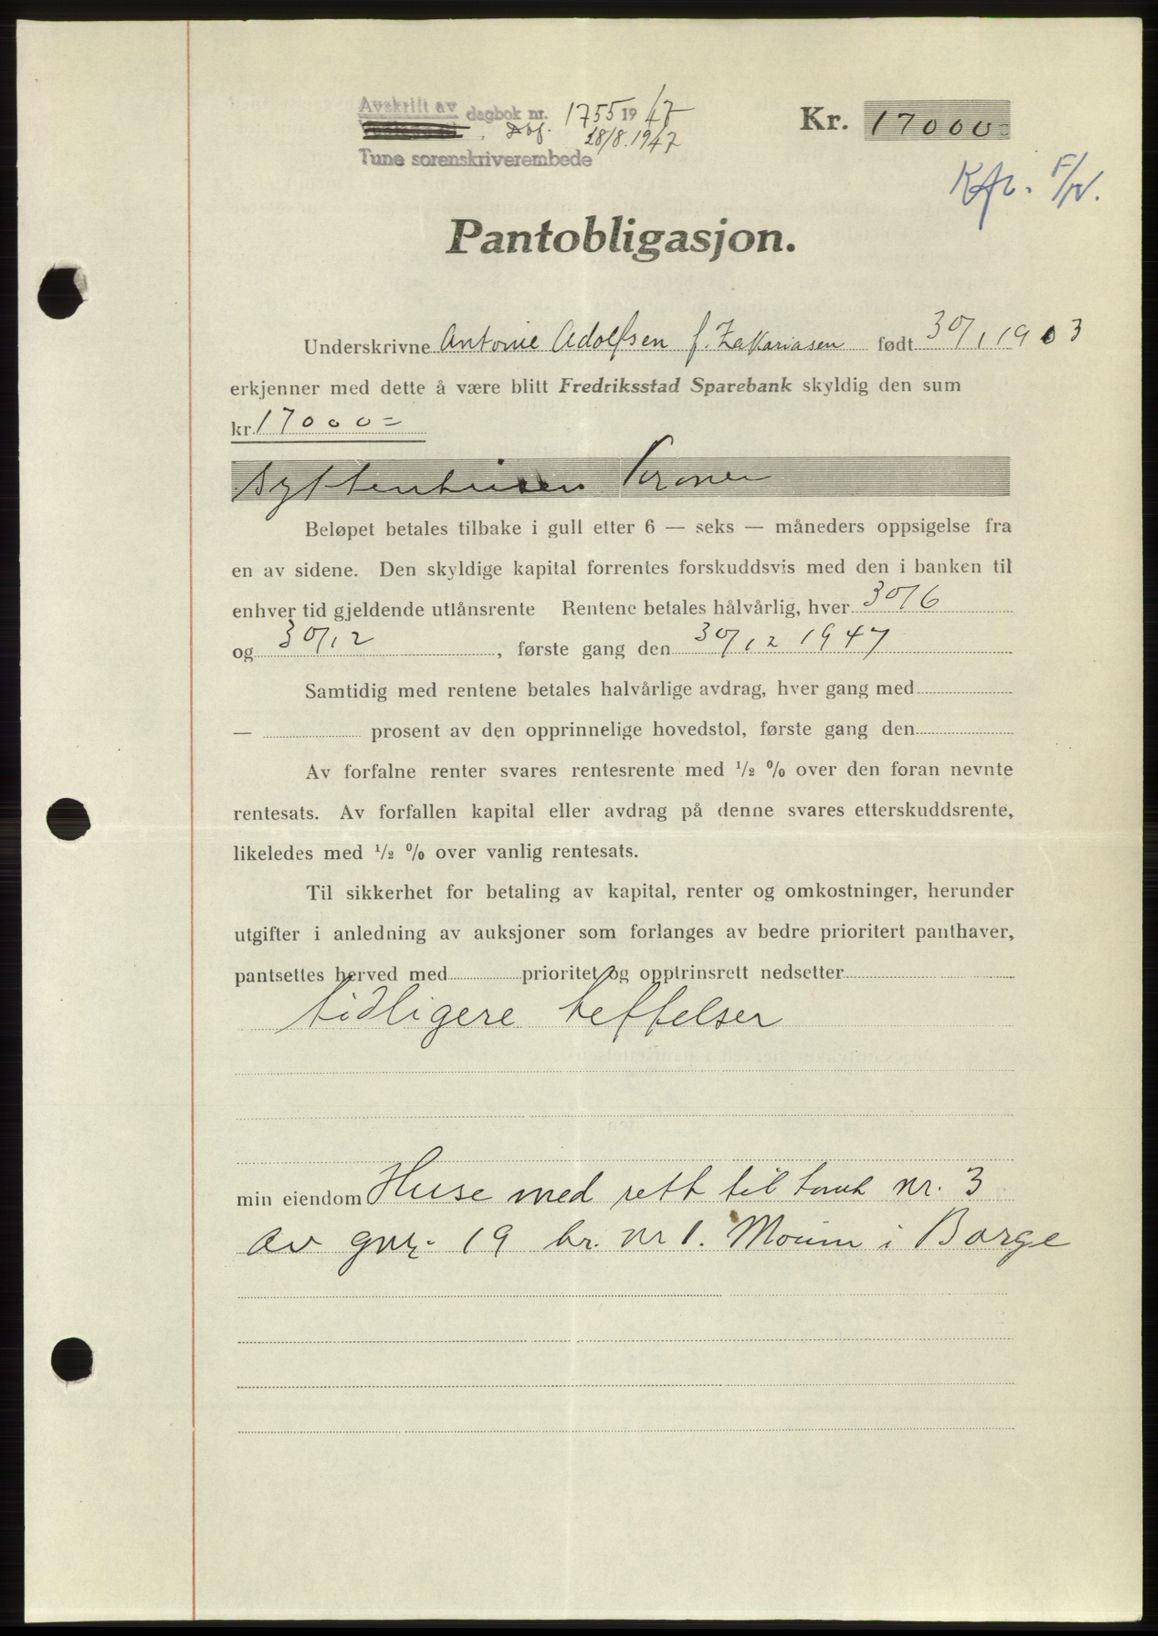 Avskrift av dagbok nr. 1755 19 47
Dbf. 28/8.1947
Tune sorenskriverembede
Kr. 17000=
Pantobligasjon.
Underskrivne Antonie Adolfsen f. Zakariasen født 30/1 1903
erkjenner med dette å være blitt Fredriksstad Sparebank skyldig den sum
kr. 17000=
syttentusen kroner
Beløpet betales tilbake i gull etter 6 — seks — måneders oppsigelse fra
en av sidene. Den skyldige kapital forrentes forskuddsvis med den i banken til
enhver tid gjeldende utlånsrente Rentene betales hålvårlig, hver 30/6
og 30/12, første gang den 30/12 1947
Samtidig med rentene betales halvårlige avdrag, hver gang med
— prosent av den opprinnelige hovedstol, første gang den
Av forfalne renter svares rentesrente med 1/2 % over den foran nevnte
rentesats. Av forfallen kapital eller avdrag på denne svares etterskuddsrente,
likeledes med 1/2 % over vanlig rentesats.
Til sikkerhet for betaling av kapital, renter og omkostninger, herunder
utgifter i anledning av auksjoner som forlanges av bedre prioritert panthaver,
pantsettes herved med prioritet og opptrinsrett nedsetter
tidligere heftelser
min eiendom Huse med rett til tomt nr. 3
av gnr. 19 br. nr 1. Moum i Borge